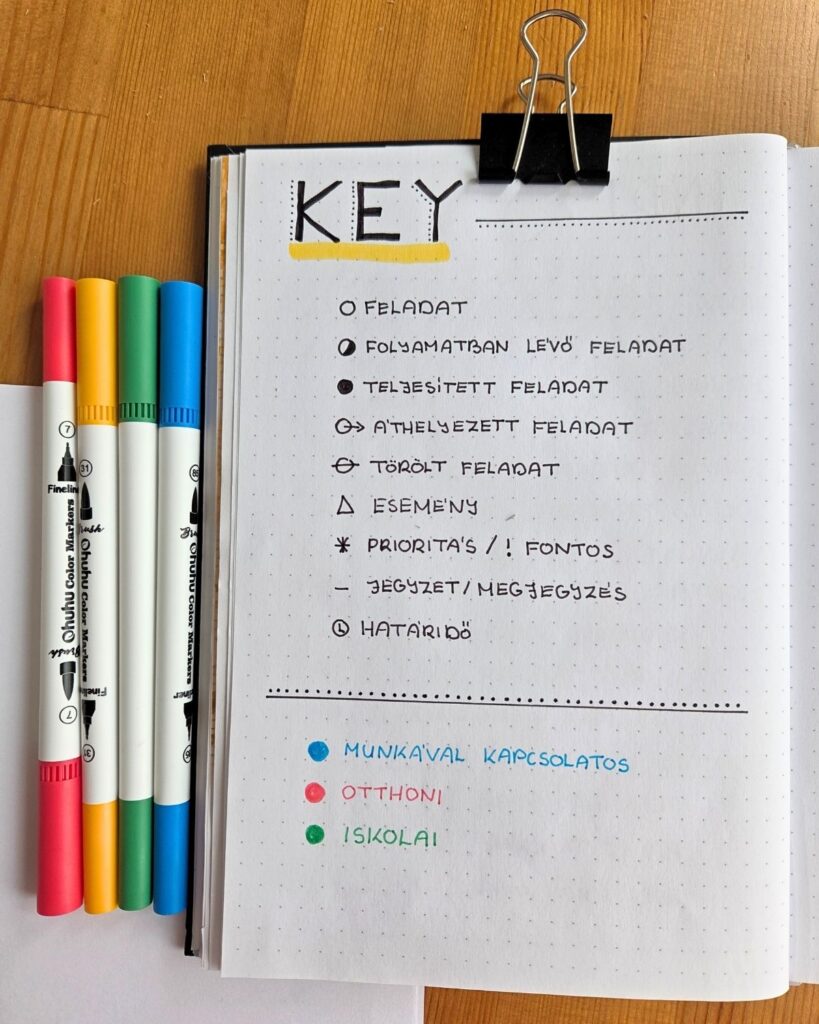 KEY
FELADAT
FOLYAMATBAN LÉVŐ FELADAT
TELJESÍTETT FELADAT
ÁTHELYEZETT FELADAT
TÖRÖLT FELADAT
ESEMÉNY
* PRIORITÁS / ! FONTOS
– JEGYZET / MEGJEGYZÉS
HATÁRIDŐ
MUNKÁVAL KAPCSOLATOS
OTTHONI
ISKOLAI
7
Fineline
Ohuhu Color Markers
Brush
7
31
Brush
Ohuhu Color Markers
Fineliner
31
Ohuhu Color Markers